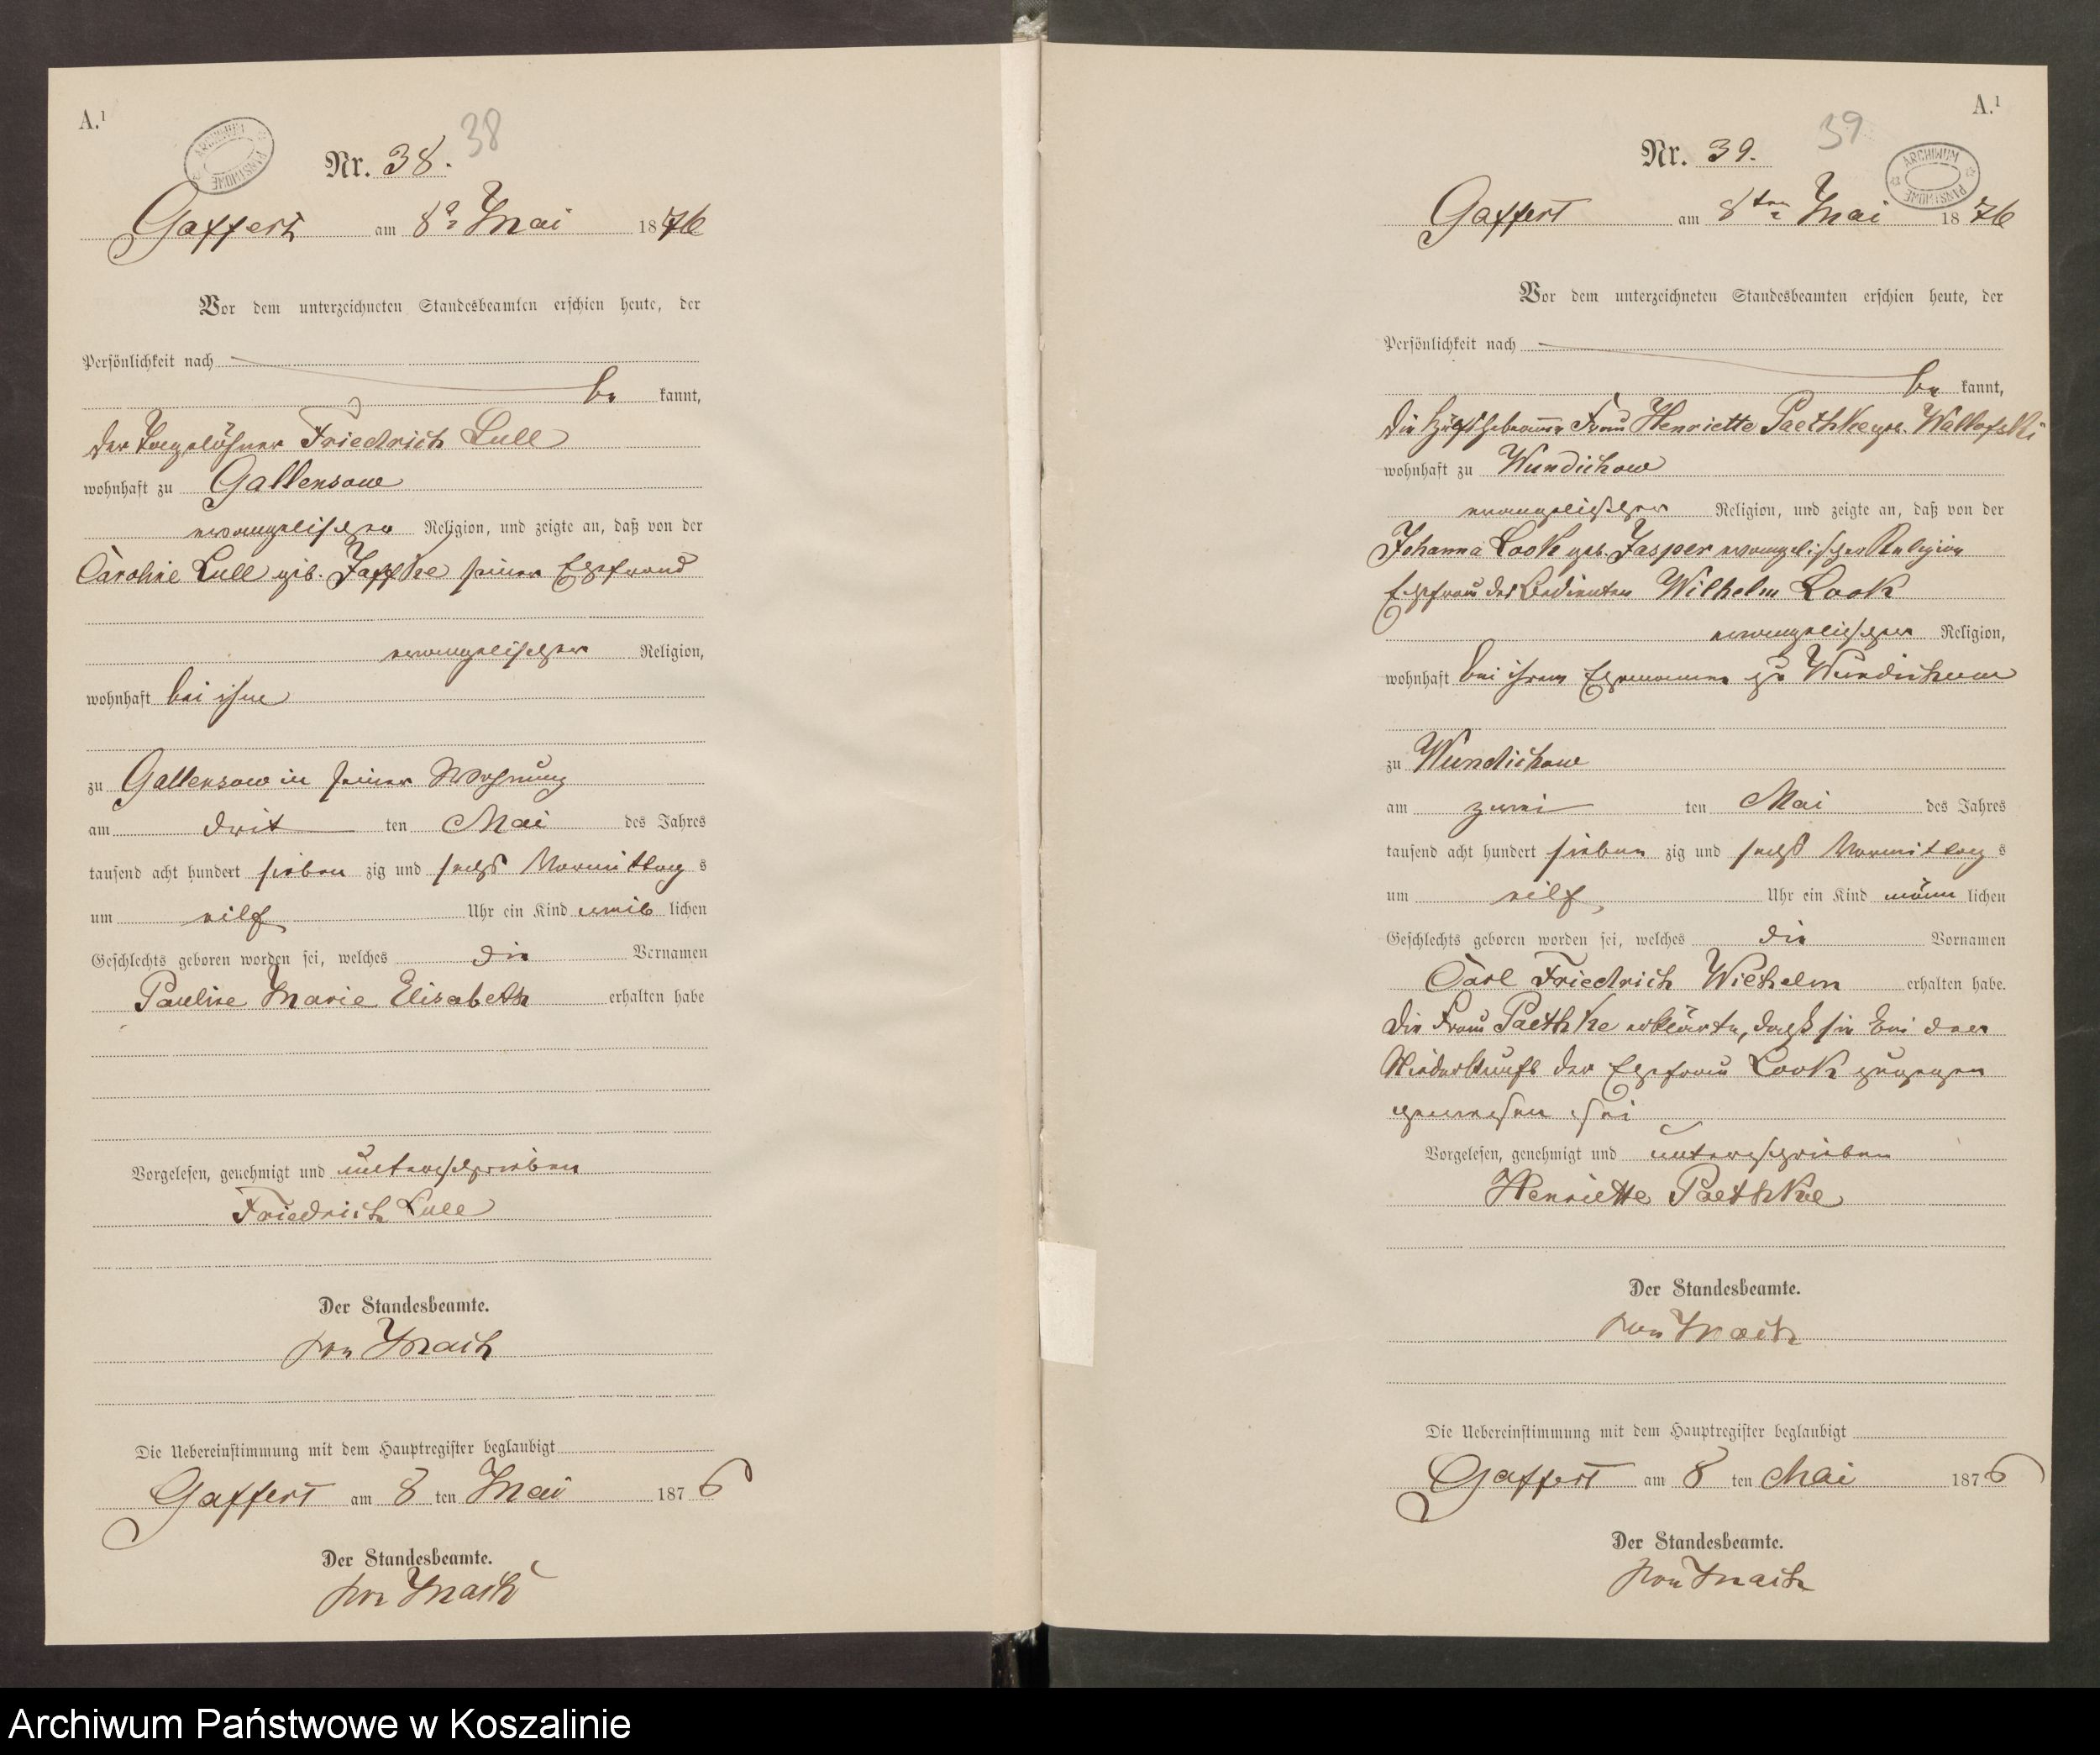 A.¹
ARCHIWUM PAŃSTWOWE
38
Nr. 38.
Gaffert am 8ᵗ Mai 1876
Vor dem unterzeichneten Standesbeamten erschien heute, der
Persönlichkeit nach
be kannt,
der Tagelöhner Friedrich Lull
wohnhaft zu Gallensow
evangelischer Religion, und zeigte an, daß von der
Caroline Lull geb. Jaffke seiner Ehefrau
evangelischer Religion,
wohnhaft bei ihm
zu Gallensow in seiner Wohnung
am drit ten Mai des Jahres
tausend acht hundert sieben zig und sechs Vormittag s
um eilf Uhr ein Kind weib lichen
Geschlechts geboren worden sei, welches die Vornamen
Pauline Marie Elisabeth erhalten habe
Vorgelesen, genehmigt und unterschrieben
Friedrich Lull
Der Standesbeamte.
von Mach
Die Uebereinstimmung mit dem Hauptregister beglaubigt
Gaffert am 8 ten Mai 1876
Der Standesbeamte.
von Mach
A.¹
39
ARCHIWUM PAŃSTWOWE
Nr. 39.
Gaffert am 8ten Mai 1876
Vor dem unterzeichneten Standesbeamten erschien heute, der
Persönlichkeit nach
be kannt,
die Frau Henriette Paethke geb.
wohnhaft zu Wundichow
evangelischer Religion, und zeigte an, daß von der
Johanna Look geb. Jasper evangelischer Religion
Ehefrau des Bedienten Wilhelm Look
evangelischer Religion,
wohnhaft bei ihrem Ehemanne zu Wundichow
zu Wundichow
am zwei ten Mai des Jahres
tausend acht hundert sieben zig und sechs Vormittag s
um eilf Uhr ein Kind männ lichen
Geschlechts geboren worden sei, welches die Vornamen
Carl Friedrich Wilhelm erhalten habe.
Die Frau Paethke erklärte, daß sie bei der
Niederkunft der Ehefrau Look zugegen
gewesen sei
Vorgelesen, genehmigt und unterschrieben
Henriette Paethke
Der Standesbeamte.
von Mach
Die Uebereinstimmung mit dem Hauptregister beglaubigt
Gaffert am 8 ten Mai 1876
Der Standesbeamte.
von Mach
Archiwum Państwowe w Koszalinie